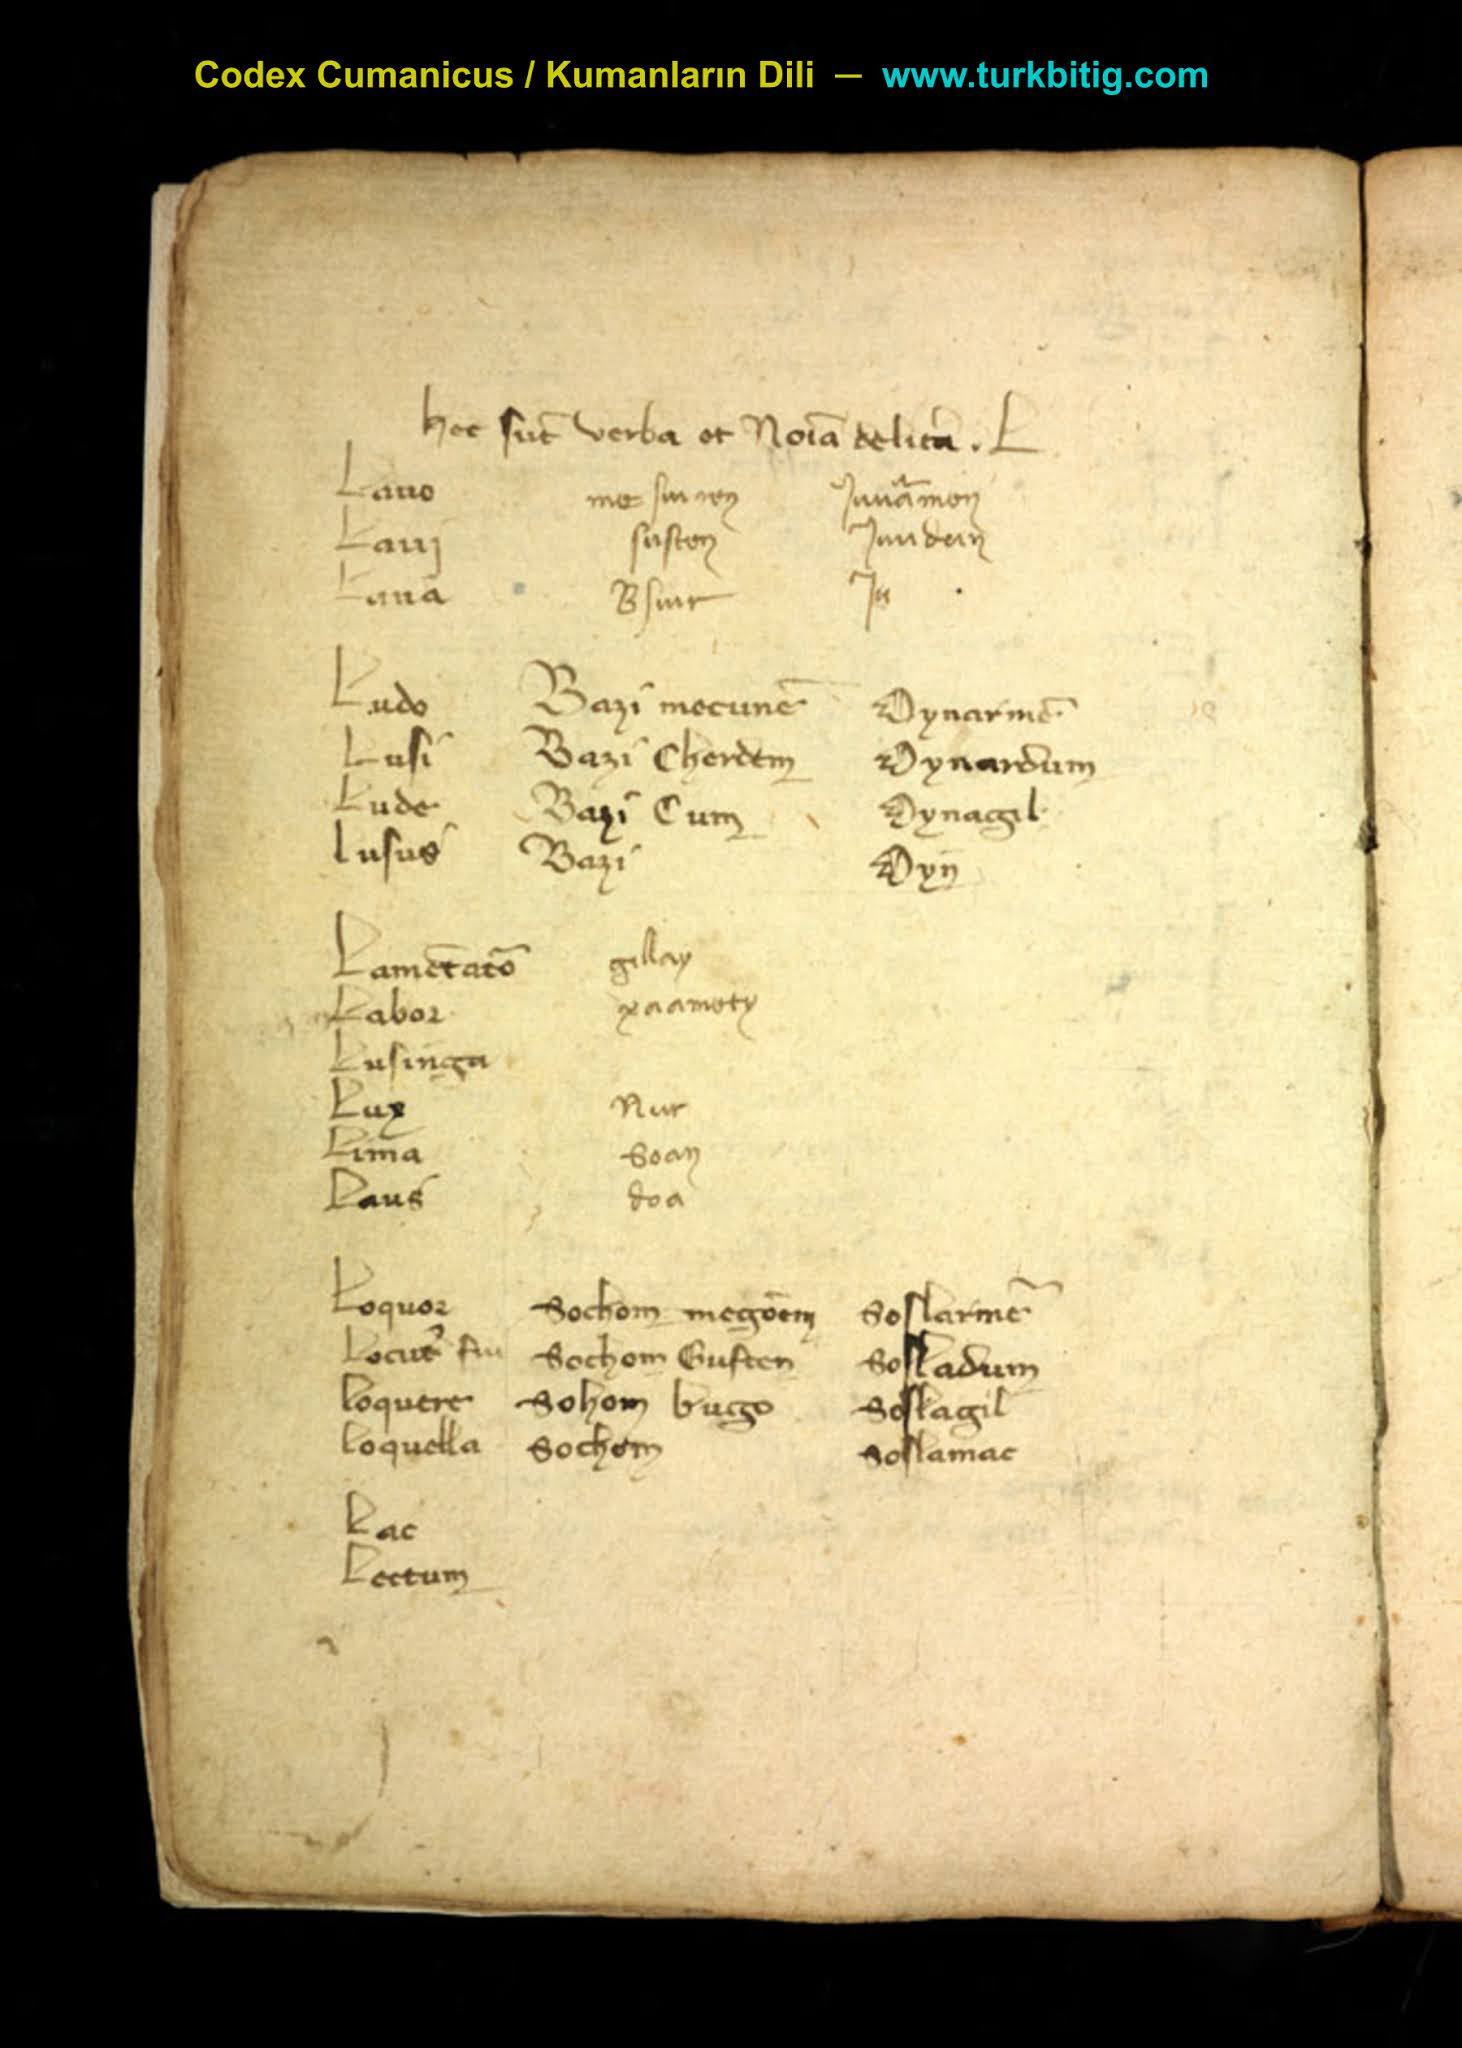 Codex Cumanicus / Kumanların Dili — www.turkbitig.com
hec sūt verba et Noīa de litera . L
Lauo me surien Juuamen
Lauj susten Juudun
Laua Bsuir Ju
Ludo Bazi mecunē Oynarmē
Lusi Bazi Cherdem Oynardum
Lude Bazi Cum Oynagil
lusus Bazi Oyn
Lamētatō gillay
Labor xaamety
Lusinga
Lux Nur
Lima Soan
Laus doa
Loquor Sochom megoēm Soslarmē
Locut' fui Sochom Gusten Sosladum
loquere Sohom bugo Soslagil
loquella Sochom Soslamac
Lac
Lectum